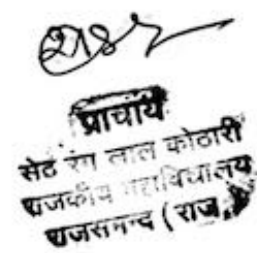 प्राचार्य
सेठ रंग लाल कोठारी
राजकीय महाविद्यालय
राजसमन्द (राज.)